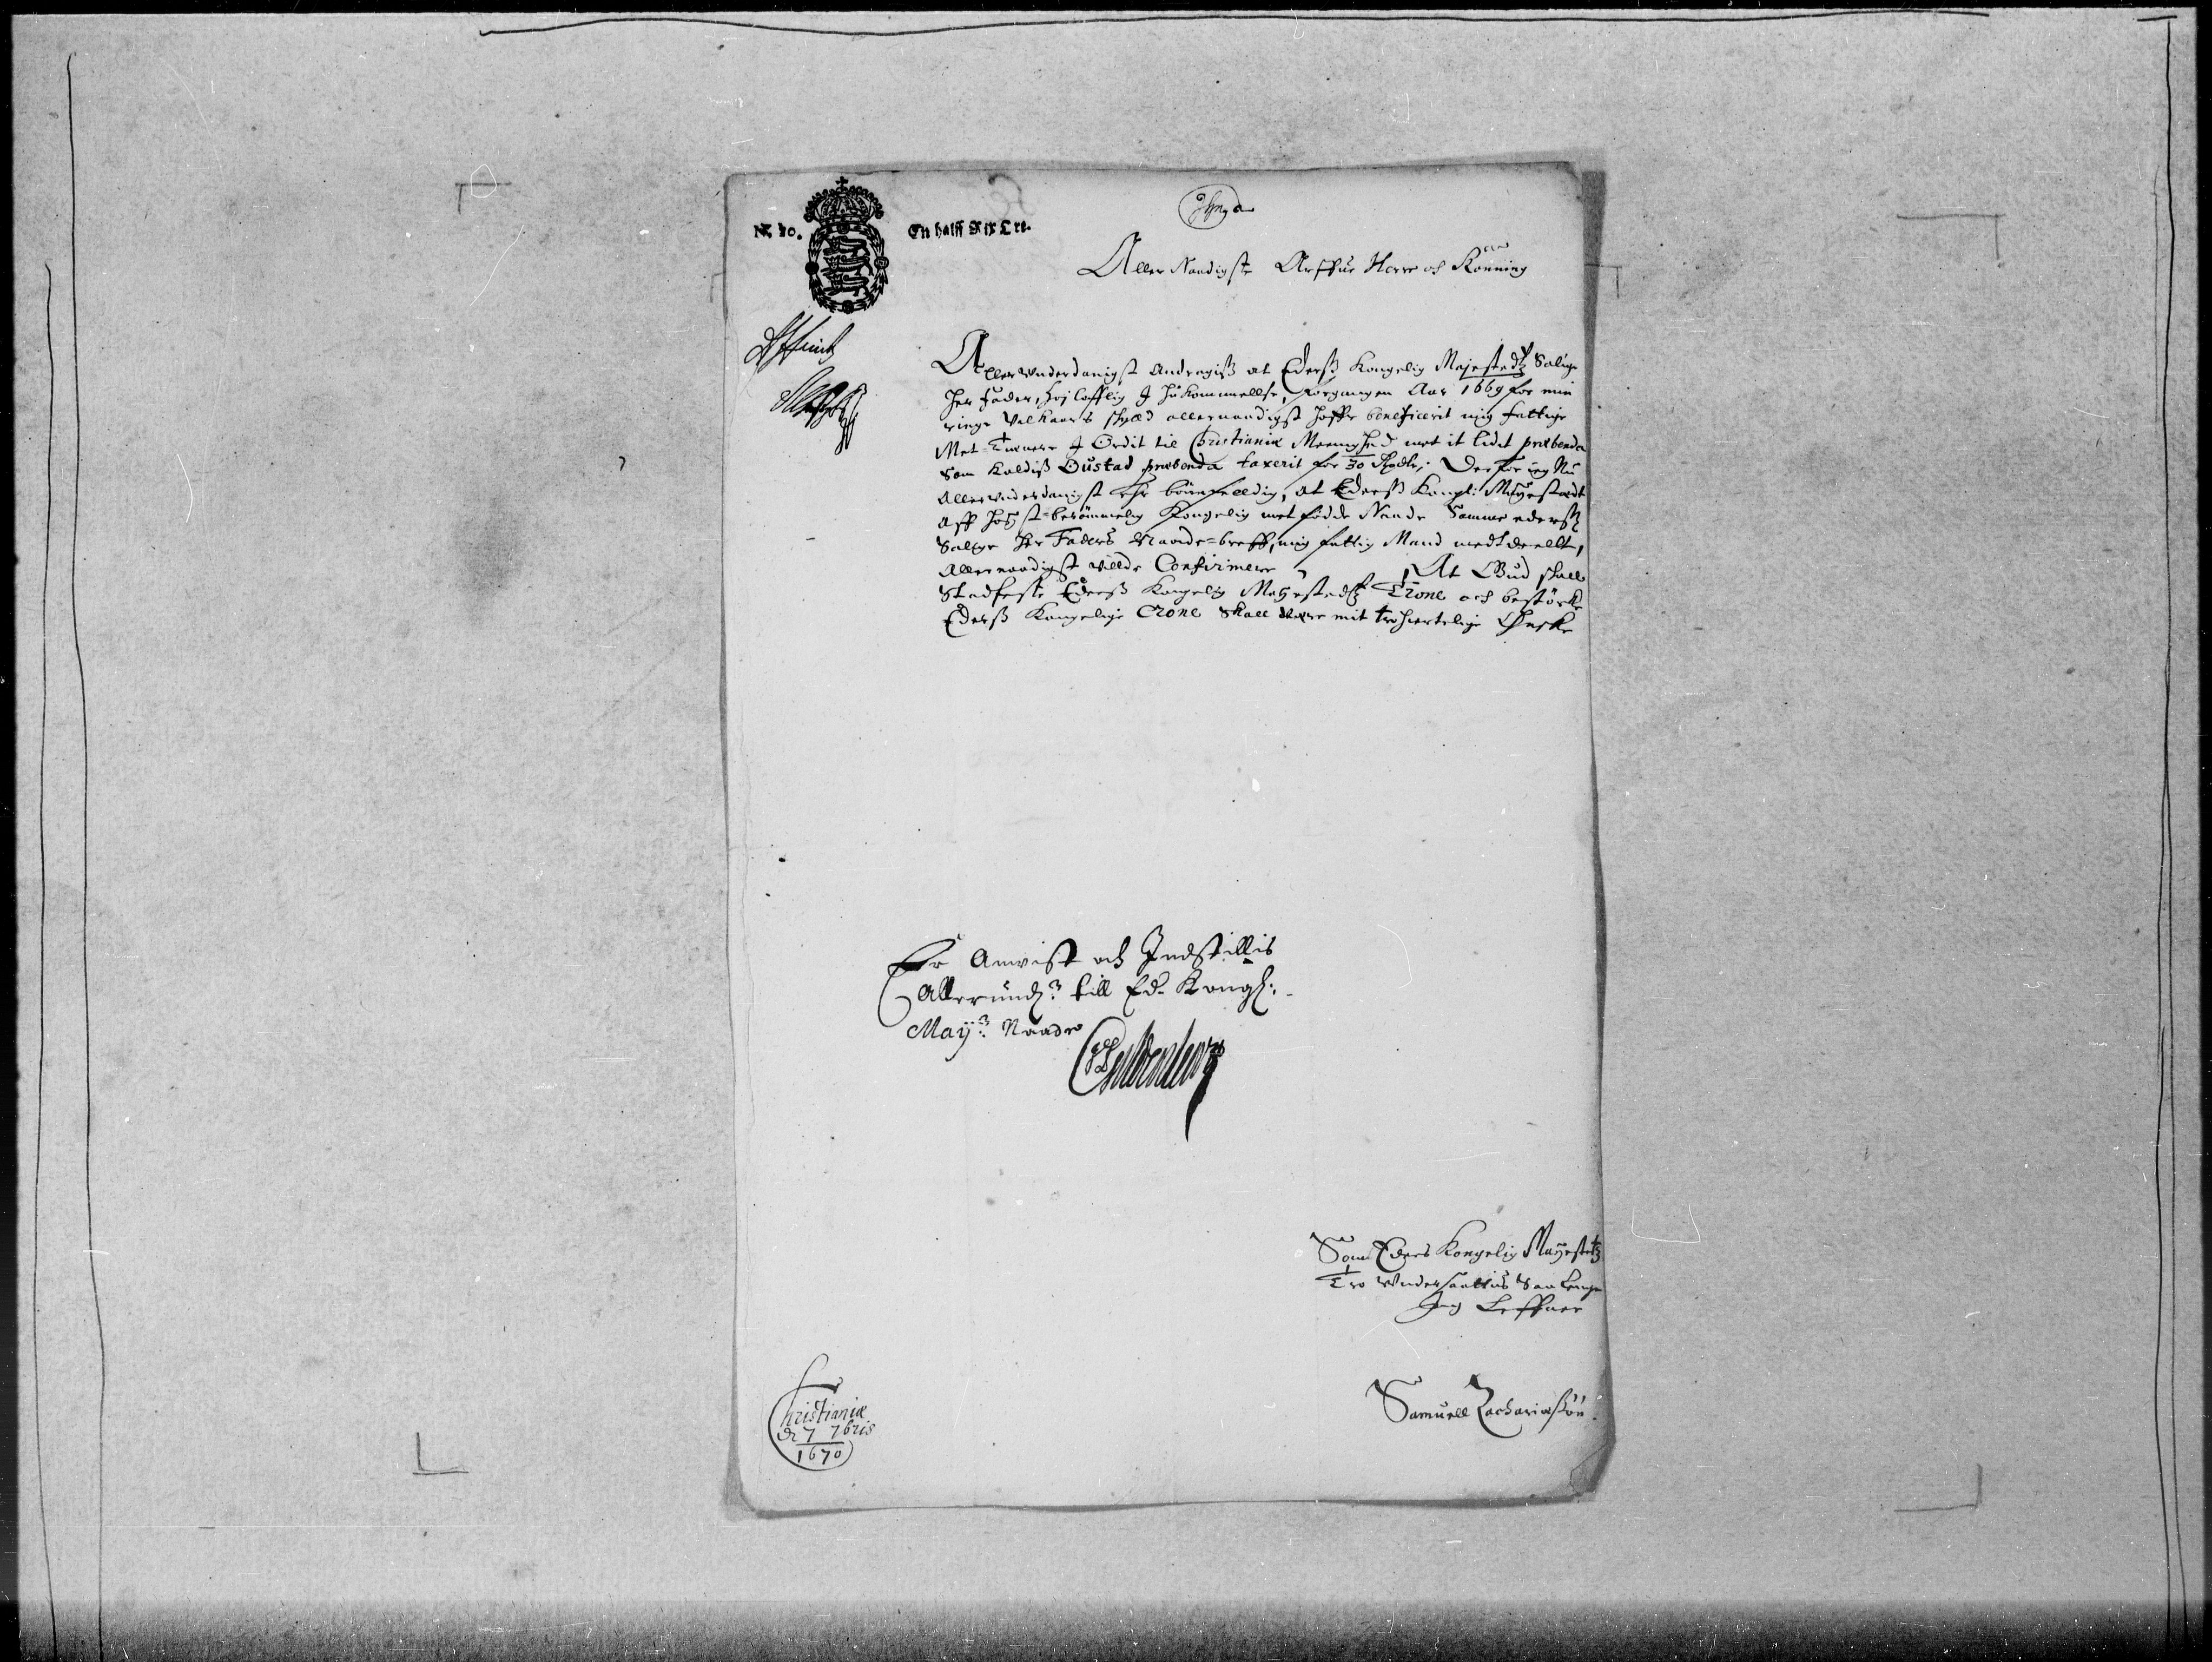 N. 20.
En halff Rix Ort.
Aller Naadigste Arffue Herre och Konning
Allervnderdanigst Andragiß at Eders Kongelig Majestedtz Salige
Her Fader, Høj Lofflig J Hukommellse, forgangen Aar 1669 for min
ringe Velkaars skyld allernaadigst haffr beneficerit mig fattige
Met Tienere J Ordit til Christianiæ Meenghed met it lidet præbenda
Som Kaldiß Oustad præbenda taxerit for 30 Rdlr; Derfor ieg Nu
Allervnderdanigst Er bönfeldig, at Eders Kongl: Mayestedt
Aff Høyst-berömmelig Kongelig met födde Naade Samme ederß
Salige Her Faders Naade-breff, mig fattig Mand meddeelt,
Allernaadigst wilde Confirmere, At Gud skall
Stadfeste Ederß Kongelig Mayestedtz Trone och bestörke
Ederß Kongelige Crone Skall were mit tro hiertelige Ønske
Er Anvist och Jndstillis
Allerund: till Ed. Kongl:
May: Naade
Gyldenleu
Som Eders Kongelig Mayestetz
Tro Vndersaattis Saa Lenge
Jeg Leffuer
Samuell Zachariæsön.
Christianiæ
d 7 7bris
1670